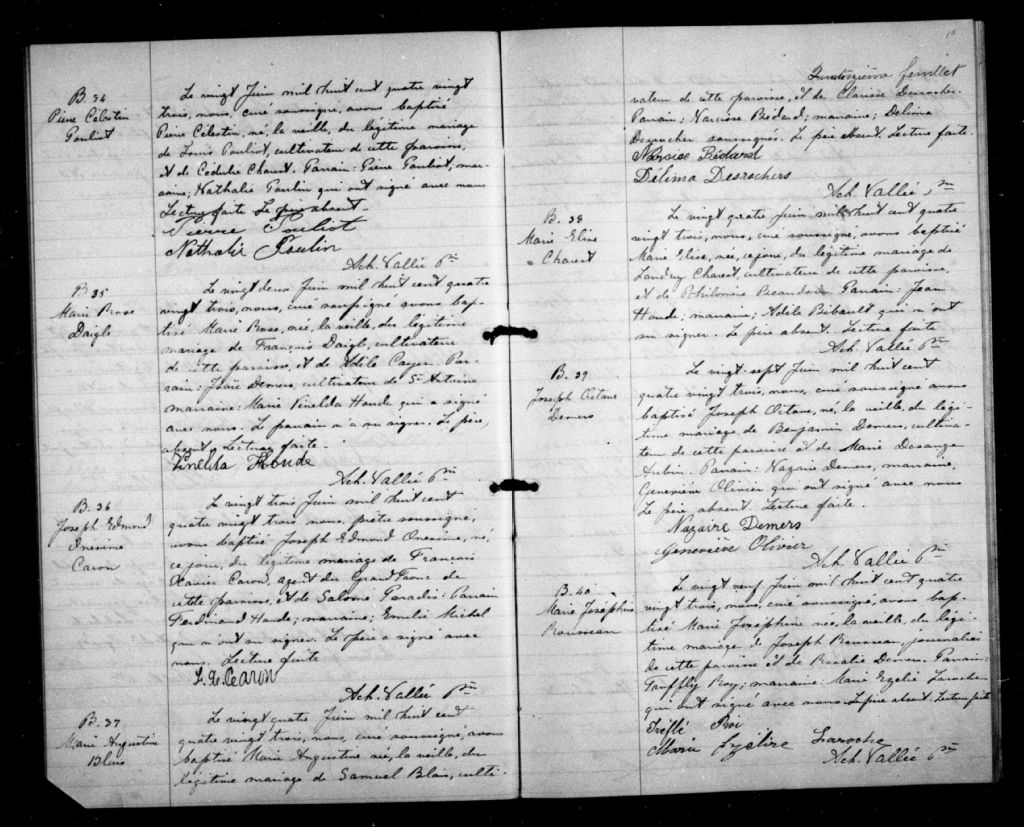 B. 34
Pierre Célestin
Pouliot
Le vingt Juin mil huit cent quatre vingt
trois, nous, curé soussigné, avons baptisé
Pierre Célestin, né, la veille, du légitime mariage
de Louis Pouliot, cultivateur de cette paroisse,
et de Cédulie Charest. Parrain: Pierre Pouliot, mar-
raine; Nathalie Poulin qui ont signé avec nous
Lecture faite Le père absent.
Pierre Pouliot
Nathalie Poulin
Ach. Vallée Ptre
B. 35
Marie Rose
Daigle
Le vingt deux Juin mil huit cent quatre
vingt trois, nous, curé soussigné avons bap-
tisé Marie Rose, née, la veille, du légitime
mariage de François Daigle, cultivateur
de cette paroisse, et de Adèle Cayer. Par-
rain: Demers, cultivateur de St Antoine
marraine: Marie Vinelda Houde qui a signé
avec nous. Le parrain n'a su signer. Le père,
absent. Lecture faite.
Vinelda Houde
Ach. Vallée Ptre
B. 36
Joseph Edmond
Onésime
Caron
Le vingt trois Juin mil huit cent
quatre vingt trois nous, prêtre soussigné,
avons baptisé Joseph Edmond Onésime, né,
ce jour, du légitime mariage de François
Xavier Caron, agent du Grand Tronc de
cette paroisse, et de Salomé Paradis: Parrain
Ferdinand Houde; marraine; Emélie Michel
qui n'ont su signer. Le père a signé avec
nous. Lecture faite
F. X. Caron
Ach. Vallée Ptre
B. 37
Marie Augustine
Blais
Le vingt quatre Juin mil huit cent
quatre vingt trois, nous, curé soussigné, avons
baptisé Marie Augustine née, la veille, du
légitime mariage de Samuel Blais, culti-
10
feuillet
vateur de cette paroisse, et de Clarisse Desrocher.
Parrain; Narcisse Bédard; marraine; Délima
Desrocher soussignés. Le père absent. Lecture faite.
Narcisse Bédard
Délima Desrochers
Ach. Vallée Ptre
B. 38
Marie Elise
Charest
Le vingt quatre Juin mil huit cent quatre
vingt trois, nous, curé soussigné, avons baptisé
Marie Elise, née, ce jour, du légitime mariage de
Landry Charest cultivateur de cette paroisse,
et de Philomène Beaudoin. Parrain: Jean
Houde; marraine; Adèle Bibault qui n'ont
su signer. Le père absent. Lecture faite
Ach. Vallée Ptre
B. 39
Joseph Octave
Demers
Le vingt-sept Juin mil huit cent
quatre vingt trois, nous, curé soussigné avons
baptisé Joseph Octave, né, la veille, du légi-
time mariage de Benjamin Demers, cultiva-
teur de cette paroisse et de Marie Desanges
Aubin. Parrain: Nazaire Demers, marraine,
Geneviève Olivier qui ont signé avec nous
Le père absent. Lecture faite.
Nazaire Demers
Geneviève Olivier
Ach. Vallée Ptre
B. 40
Marie Joséphine
Rousseau
Le vingt neuf Juin mil huit cent quatre
vingt trois, nous, curé soussigné, avons bap-
tisé Marie Joséphine née, la veille, du légi-
time mariage de Joseph Rousseau, journalier
de cette paroisse et de Rosalie Demers. Parrain:
Truffly Roy; marraine: Marie Ezelie Laroche
qui ont signé avec nous. Le père absent. Lecture faite
Trefflé Roi
Marie Ezélire Laroche
Ach. Vallée Ptre